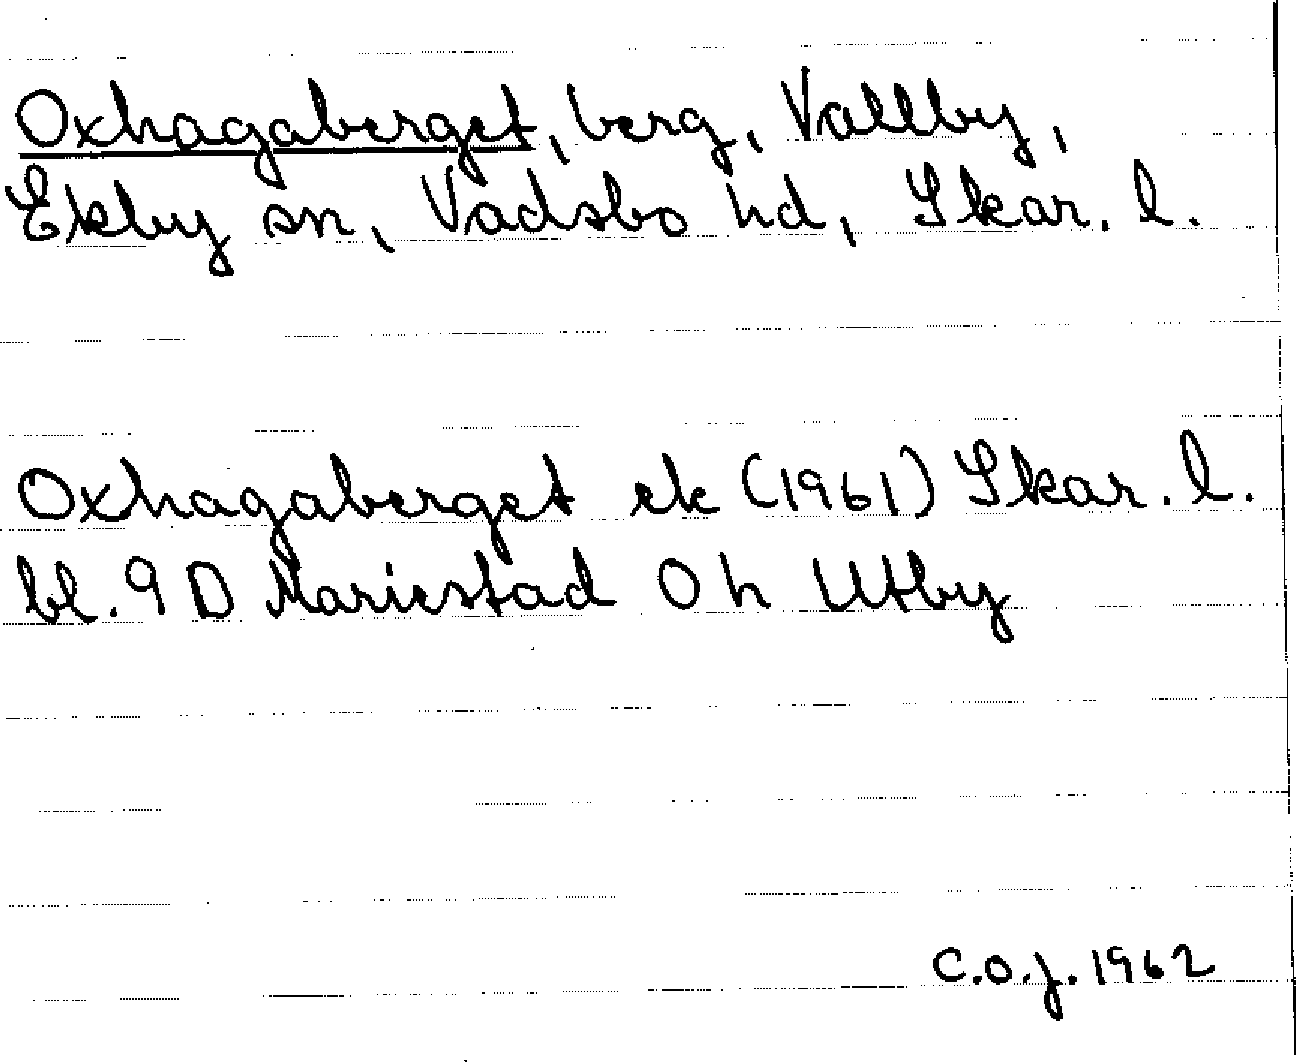 Oxhagaberget, berg, Vallby,
Ekby sn, Vadsbo hd, Skar. l.
Oxhagaberget ek (1961) Skar. l.
bl. 9 D Mariestad 0 h Utby
C.O.J. 1962